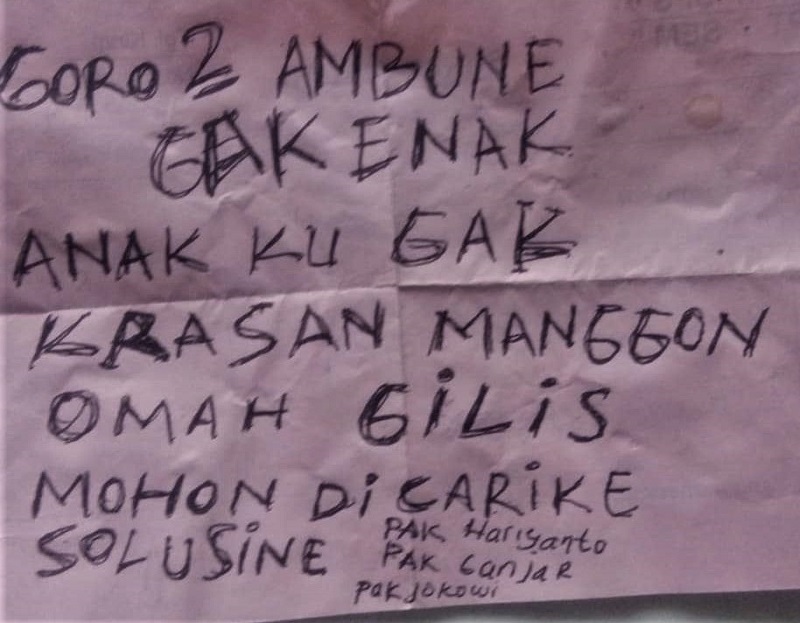 GORO2 AMBUNE
GAK ENAK
ANAK KU GAK
KRASAN MANGGON
OMAH GiLiS
MOHON DiCARiKE
SOLUSiNE
PAK Hariyanto
PAK GanjaR
pak jokowi